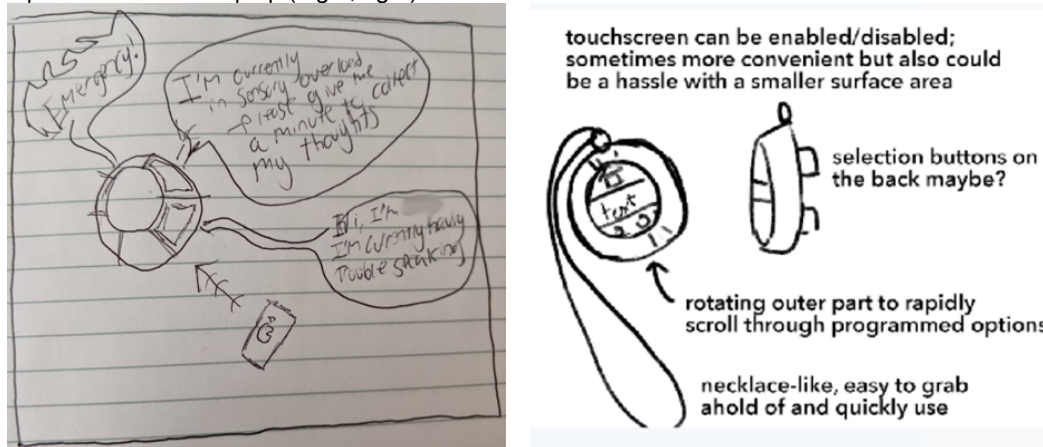 Emergency!
I'm currently
in sensory overload
please give me
a minute to collect
my thoughts
Hi, I'm
I'm currently having
trouble speaking
touchscreen can be enabled/disabled;
sometimes more convenient but also could
be a hassle with a smaller surface area
text
selection buttons on
the back maybe?
rotating outer part to rapidly
scroll through programmed options
necklace-like, easy to grab
ahold of and quickly use